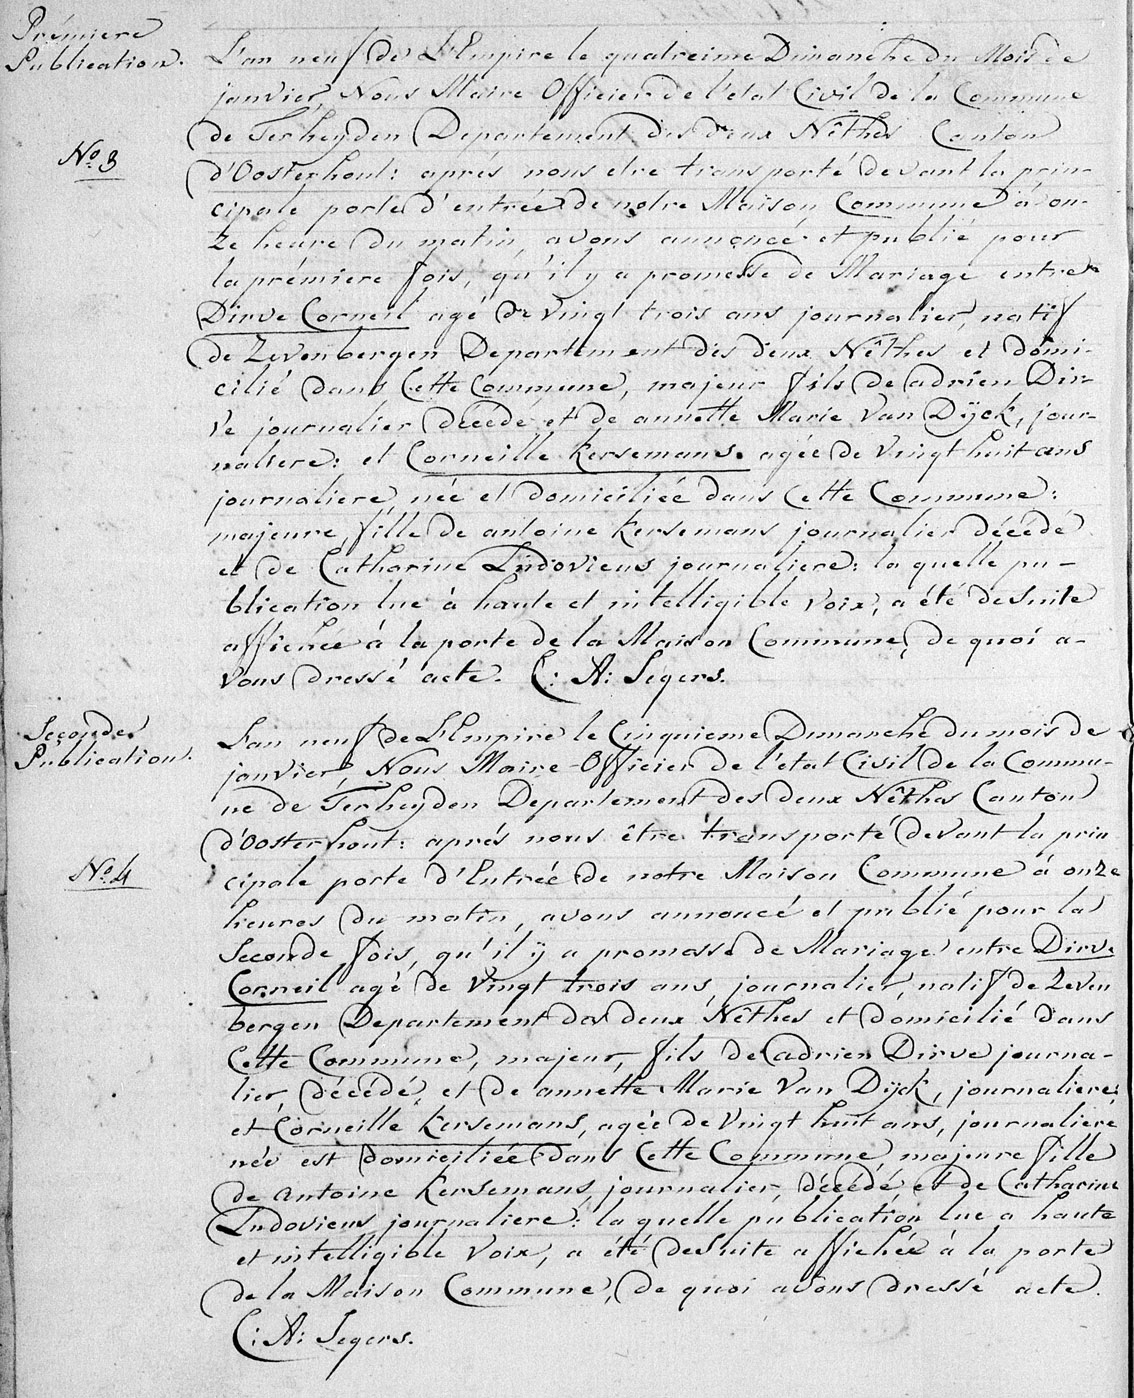 Prémiere
Publication.
L'an neuf de L'Empire le quatreime Dimanche du Mois de
janvier, Nous Maire Officier de l'etat Civil de la Commune
de Terheyden Departement des deux Nêthes Canton
N.º 3
d'Oosterhout: aprés nous etre transporté devant la prin-
cipale porte d'entrée de notre Maison Commune à on-
ze heure du matin, avons annoncé et publié pour
la prémiere fois, qu'il y a promesse de Mariage entre
Dirve Corneil agé de Vingt trois ans journalier, natif
de Zevenbergen Departement des deux Nêthes et domi-
cilié dans Cette Commune, majeur fils de adrien Dir-
ve journalier décéde et de annette Marie Van Dÿck, jour-
naliere: et Corneille Kersemans. agée de Vingt huit ans
journaliere née et domiciliée dans Cette Commune:
majeure, fille de antoine Kersemans journalier décédé
et de Catharine Ludoviens journaliere: la quelle pu-
blication lue à haute et intelligible Voix, a été desuite
affichée à la porte de la Maison Commune, de quoi a-
vons dressé acte. C: A: Segers.
Seconde
Publication.
L'an neuf de L'Empire le Cinquieme Dimanche du mois de
janvier, Nous Maire Officier de l'etat Civil de la Commu-
ne de Terheyden Departement des deux Nêthes Canton
d'Oosterhout: aprés nous être transporté devant la prin
N.º 4
cipale porte d'Entrée de notre Maison Commune à onze
heures du matin, avons annoncé et publié pour la
Seconde fois, qu'il ÿ a promesse de Mariage entre Dirve
Corneil agé de Vingt trois ans journalier, natif de Zeven
bergen Departement des deux Nêthes et domicilié dans
Cette Commune, majeur, fils de adrien Dirve journa-
lier, décédé, et de annette Marie Van Dÿck, journaliere
et Corneille Kersemans, agée de Vingt huit ans, journaliere
née est domiciliée dans Cette Commune majeure fille
de antoine Kersemans, journalier, décédé, et de Catharine
Ludoviens journaliere: la quelle publication lue a haute
et intelligible Voix, a été desuite affichée à la porte
de la Maison Commune, de quoi avons dressé acte.
C: A: Segers.